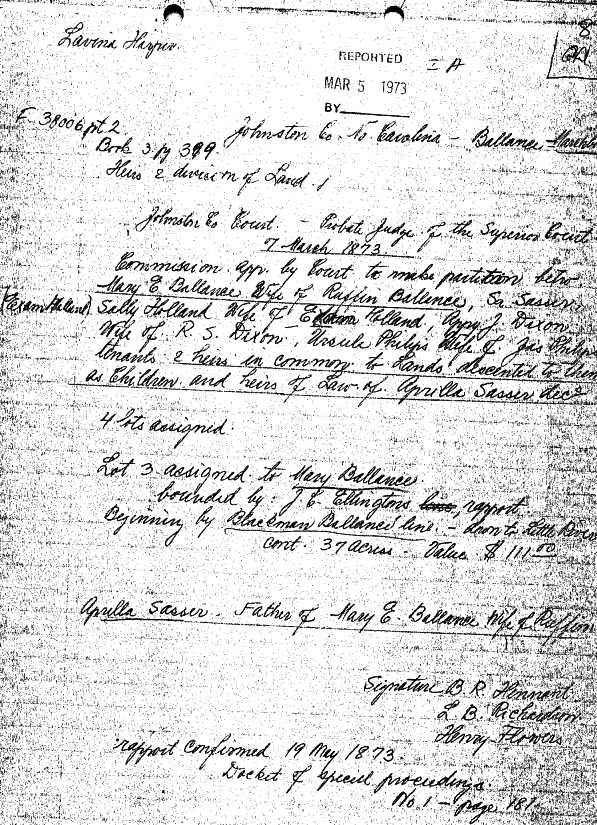 Lavina Harper
REPORTED
I A
MAR 5 1973
BY
F 38006 pt 2
Johnston Co. No. Carolina - Ballance -
Book 3 pg 399
Heirs & division of Land
Johnston Co Court - Probate Judge of the Superior Court
7 March 1873
Commission app. by Court to make partition betw
Mary E Ballance Wife of Ruffin Ballance, Sasser
Sally Holland Wife of Holland, J. Dixon
Wife of R. S. Dixon, Ursula Philips Wife of Jas Philips
tenants & heirs in common to Lands descented to them
as Children and heirs of Law of Aprilla Sasser decd
4 lots assigned.
Lot 3 assigned to Mary Ballance
bounded by: J. E. Ellingtons line, rapport
Beginning by Blackman Ballance line - down to Little River
cont. 37 acres - Value $ 111.00
Aprilla Sasser - Father of Mary E. Ballance Wife of Ruffin
Signature B. R. Hinnant
L. B. Richardson
Henry Flowers
rapport confirmed 19 May 1873.
Docket of special proceedings.
No. 1 - page 181.